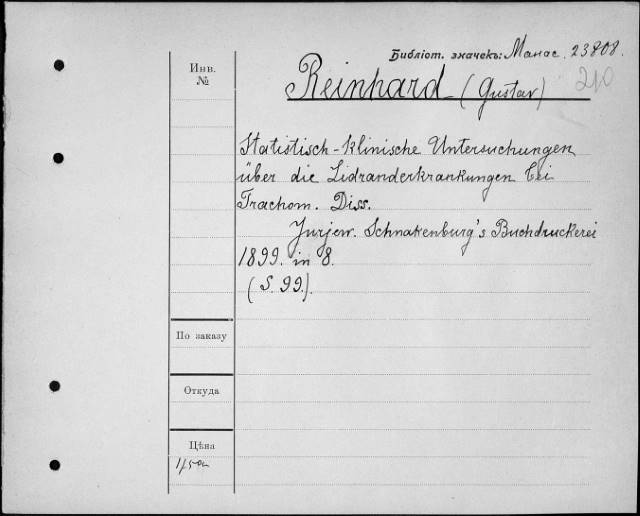 Библіот. значекъ: Манас. 23808.
210
Инв.
№
Reinhard (Gustav)
Statistisch-klinische Untersuchungen
über die Lidranderkrankungen bei
Trachom. Diss.
Jurjew. Schnakenburg's Buchdruckerei
1899. in 8.
(S. 99.).
По заказу
Откуда
Цѣна